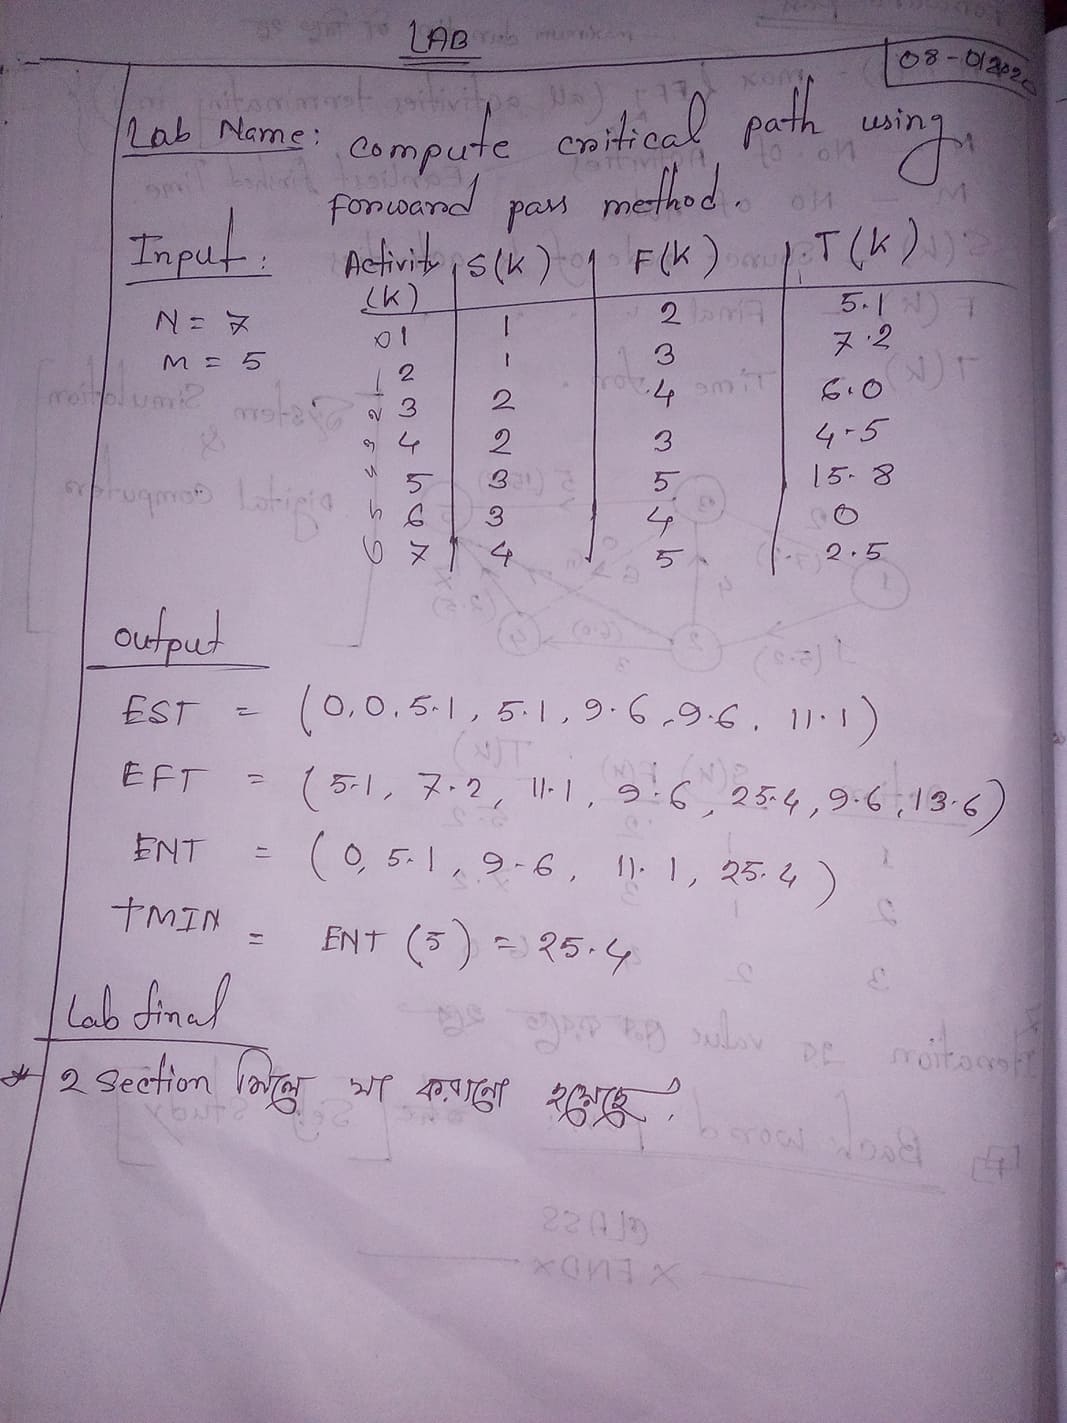 LAB
08-01-2020
Lab Name: compute critical path using
forward pass method.
Input: Activity (K) S(K) F(K) T(K)
N = 7
M = 5
0 1 1 2 5.1
1 2 1 3 7.2
2 3 2 4 6.0
3 4 2 3 4.5
4 5 3 5 15.8
5 6 3 4 0
6 7 4 5 2.5
output
EST = (0, 0, 5.1, 5.1, 9.6, 9.6, 11.1)
EFT = (5.1, 7.2, 11.1, 9.6, 25.4, 9.6, 13.6)
ENT = (0, 5.1, 9.6, 11.1, 25.4)
TMIN = ENT (5) = 25.4
Lab final
* 2 Section মিলে যা করানো হয়েছে.